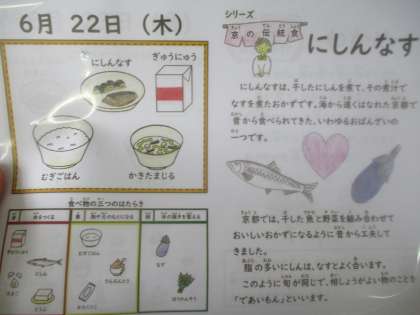 6月 22日(木)
にしんなす
ぎゅうにゅう
むぎごはん
かきたまじる
食べ物の三つのはたらき
シリーズ
京の伝統食
にしんなす
にしんなすは、干したにしんを煮て、その煮汁で
なすを煮たおかずです。海から遠くはなれた京都で
昔から食べられてきた、いわゆるおばんざいの
一つです。
京都では、干した魚と野菜を組み合わせて
おいしいおかずになるように昔から工夫して
きました。
脂の多いにしんは、なすとよく合います。
このように旬が同じで、相しょうがよい物のことを
「であいもん」といいます。